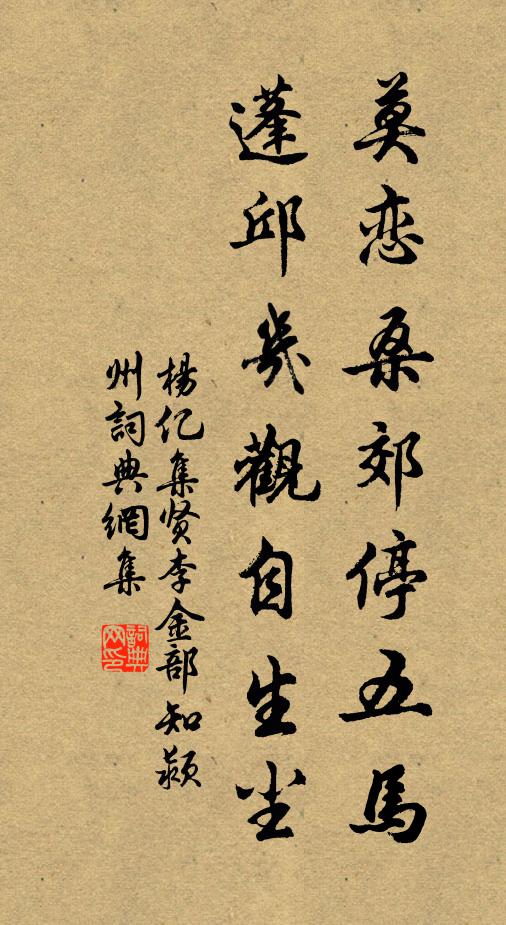 莫恋桑郊停五馬
蓬邱幾觀自生尘
楊亿集贤李金部知颍
州詞典網集
詞典
网印